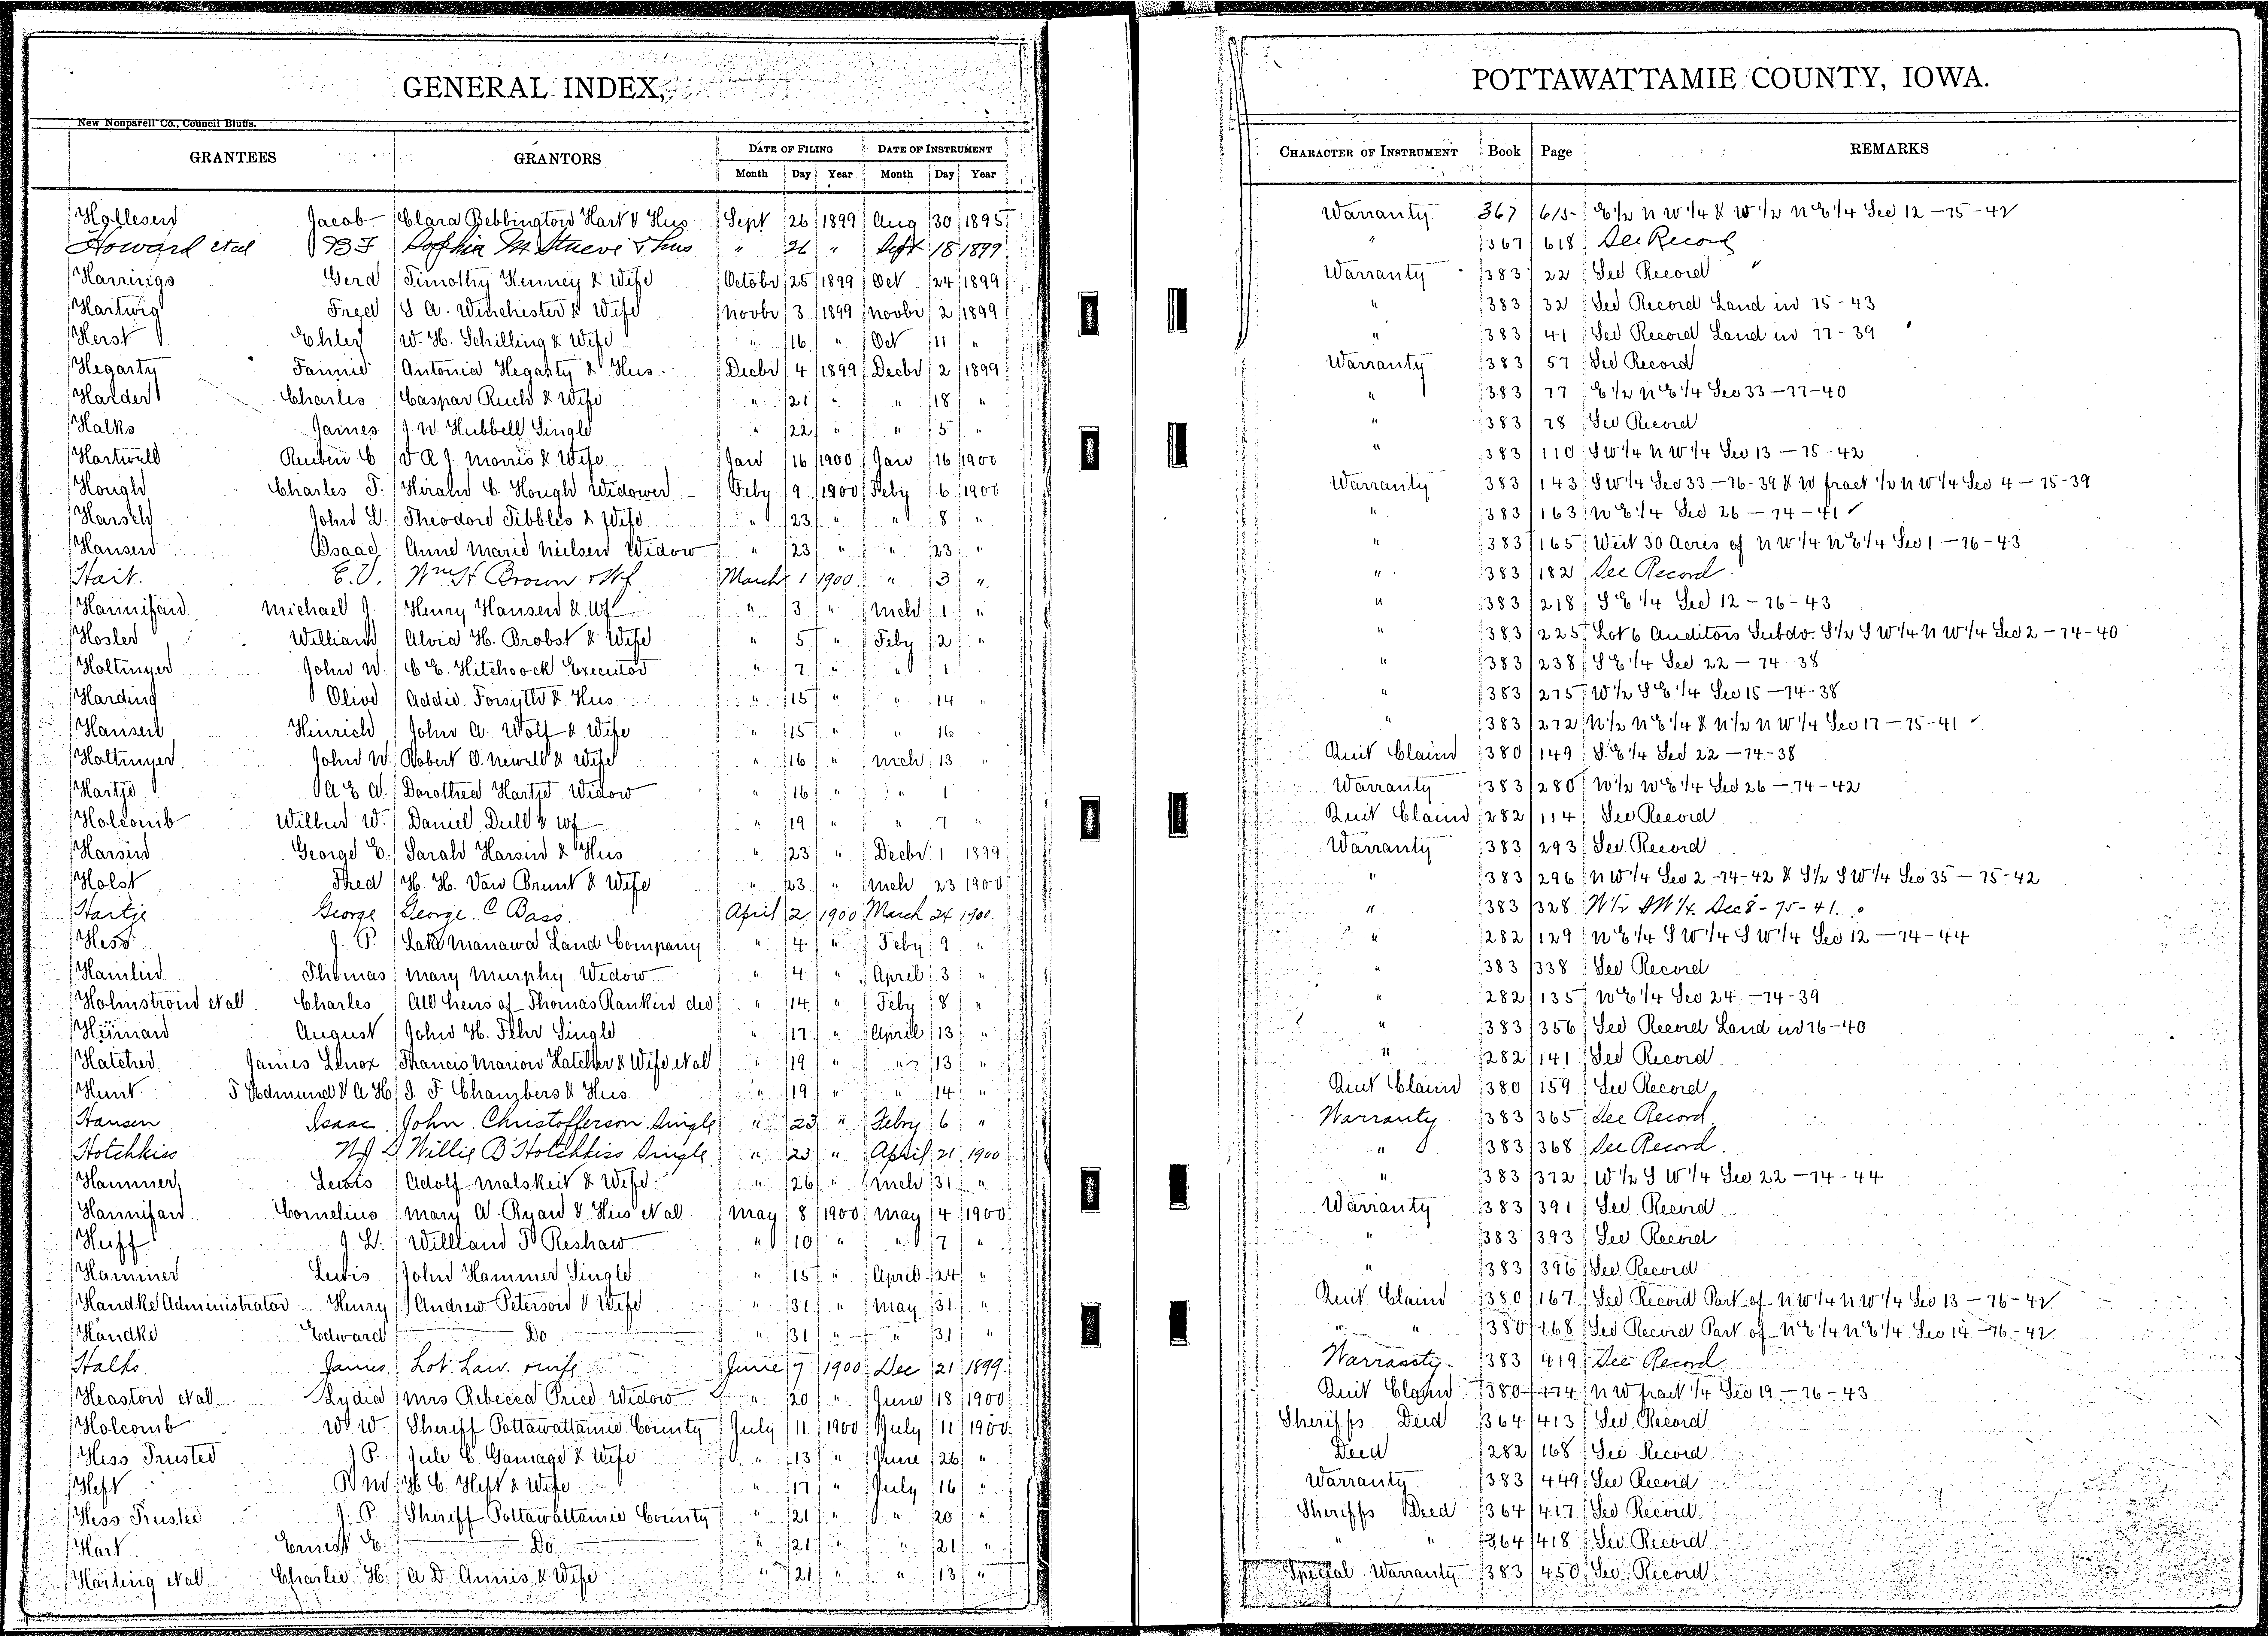 GENERAL INDEX,
POTTAWATTAMIE COUNTY, IOWA.
New Nonpareil Co., Council Bluffs.
GRANTEES GRANTORS DATE OF FILING DATE OF INSTRUMENT CHARACTER OF INSTRUMENT Book Page REMARKS
Month Day Year Month Day Year
Hollesen Jacob Clara Bebbington Hart & Hus Sept 26 1899 Aug 30 1895 Warranty 367 615 E 1/2 N W 1/4 & W 1/2 N E 1/4 Sec 12 - 75 - 42
Howard et al B F Sophia M Stueve & hus " 26 " Sept 18 1899 " 367 618 See Record
Harrings Gerd Timothy Kenney & Wife Octobr 25 1899 Oct 24 1899 Warranty 383 22 See Record
Hartwig Fred S A. Winchester & Wife Novbr 3 1899 Novbr 2 1899 " 383 32 See Record Land in 75 - 43
Herst Ehler W. H. Schilling & Wife " 16 " Oct 11 " " 383 41 See Record Land in 77 - 39
Hegarty Fannie Antonia Hegarty & Hus. Decbr 4 1899 Decbr 2 1899 Warranty 383 57 See Record
Harder Charles Caspar Ruch & Wife " 21 " " 18 " " 383 77 E 1/2 N E 1/4 Sec 33 - 77 - 40
Halks James J. W. Hubbell Single " 22 " " 5 " " 383 78 See Record
Hartwell Reuben C D R J. Morris & Wife Jan 16 1900 Jan 16 1900 " 383 110 S W 1/4 N W 1/4 Sec 13 - 75 - 42
Hough Charles T. Hiram C. Hough Widower Feby 9 1900 Feby 6 1900 Warranty 383 143 S W 1/4 Sec 33 - 76 - 39 & W fract 1/2 N W 1/4 Sec 4 - 75 - 39
Harsch John L. Theodore Tibbles & Wife " 23 " " 8 " " 383 163 N E 1/4 Sec 26 - 74 - 41
Hansen Isaac Anne Marie Nielsen Widow " 23 " " 23 " " 383 165 West 30 Acres of N W 1/4 N E 1/4 Sec 1 - 76 - 43
Hait. E. V. Wm H Brown & Wf March 1 1900 " 3 " " 383 182 See Record
Hannifan Michael J. Henry Hansen & Wf " 3 " Mch 1 " " 383 218 S E 1/4 Sec 12 - 76 - 43
Hosler William Alvia H. Brobst & Wife " 5 " Feby 2 " " 383 225 Lot 6 Auditors Subdv. S 1/2 S W 1/4 N W 1/4 Sec 2 - 74 - 40
Holtinger John W. C E. Hitchcock Executor " 7 " " 1 " 383 238 S E 1/4 Sec 22 - 74 38
Harding Olive Addie Forsyth & Hus " 15 " " 14 " " 383 275 W 1/2 S E 1/4 Sec 15 - 74 - 38
Hansen Hinrich John A. Wolf & Wife " 15 " " 16 " " 383 272 N 1/2 N E 1/4 & N 1/2 N W 1/4 Sec 17 - 75 - 41
Holtinger John W. Robert O. Newell & Wife " 16 " Mch 13 " Quit Claim 380 149 S. E 1/4 Sec 22 - 74 - 38
Hartje A E A. Dorothea Hartje Widow " 16 " " 1 Warranty 383 280 W 1/2 N E 1/4 Sec 26 - 74 - 42
Holcomb Wilbur W. Daniel Dull & Wf " 19 " 7 " Quit Claim 282 114 See Record
Harsin George E. Sarah Harsin & Hus " 23 " Decbr. 1 1899 Warranty 383 293 See Record
Holst Fred H. H. Van Brunt & Wife " 23 " Mch 23 1900 " 383 296 N W 1/4 Sec 2 - 74 - 42 & S 1/2 S W 1/4 Sec 35 - 75 - 42
Hartje George George C Bass. April 2 1900 March 24 1900. " 383 328 N 1/2 S W 1/4 Sec 8 - 75 - 41.
Hess J. P. Lake Manawa Land Company " 4 " Feby 9 " " 282 129 N E 1/4 S W 1/4 S W 1/4 Sec 12 - 74 - 44
Hamlin Thomas Mary Murphy Widow " 4 " April 3 " " 383 338 See Record
Holmstrom et al Charles All heirs of Thomas Rankin dec " 14 " Feby 8 " " 282 135 N E 1/4 Sec 24 - 74 - 39
Human August John H. Fehr Single " 17 " April 13 " " 383 356 See Record Land in 76 - 40
Hatcher James Lenox Francis Marion Hatcher & Wife et al " 19 " " 13 " " 282 141 See Record
Hunt T Edmund & A H J. F Chambers & Hus " 19 " " 14 " Quit Claim 380 159 See Record
Hansen Isaac John Christofferson Single " 23 " Febry 6 " Warranty 383 365 See Record
Hotchkiss Willie B Hotchkiss Single " 23 " April 21 1900 " 383 368 See Record.
Hammer Lewis Adolf Malskeit & Wife " 26 " Mch 31 " " 383 372 W 1/2 S W 1/4 Sec 22 - 74 - 44
Hannifan Cornelius Mary A. Ryan & Hus et al May 8 1900 May 4 1900 Warranty 383 391 See Record
Huff J L. Willland P Reshaw " 10 " " 7 " " 383 393 See Record
Hammer Lewis John Hammer Single " 15 " April 24 " " 383 396 See Record
Handke Administrator Henry J Andrew Peterson & Wife " 31 " May 31 " Quit Claim 380 167 See Record Part of N W 1/4 N W 1/4 Sec 13 - 76 - 42
Handke Edward Do " 31 " " 31 " " " 380 168 See Record Part of N E 1/4 N E 1/4 Sec 14 - 76 - 42
Halks. James Lot Law. & wife June 7 1900 Dec 21 1899. Warranty 383 419 See Record
Heaston et al Lydia Mrs Rebecca Price Widow " 20 " June 18 1900 Quit Claim 380 174 N W fract 1/4 Sec 19 - 76 - 43
Holcomb W W. Sheriff Pottawattamie County July 11 1900 July 11 1900 Sheriffs Deed 364 413 See Record
Hess Trustee J P. Jule C. Gamage & Wife " 13 " June 26 " Deed 282 168 See Record
Heft H C. Heft & Wife " 17 " July 16 " Warranty 383 449 See Record
Hess Trustee J. P. Sheriff Pottawattamie County " 21 " " 20 " Sheriffs Deed 364 417 See Record
Hart Ernest E. Do " 21 " " 21 " " " 364 418 See Record
Harling et al Charlie H. A D. Annis & Wife " 21 " " 13 " Special Warranty 383 450 See Record